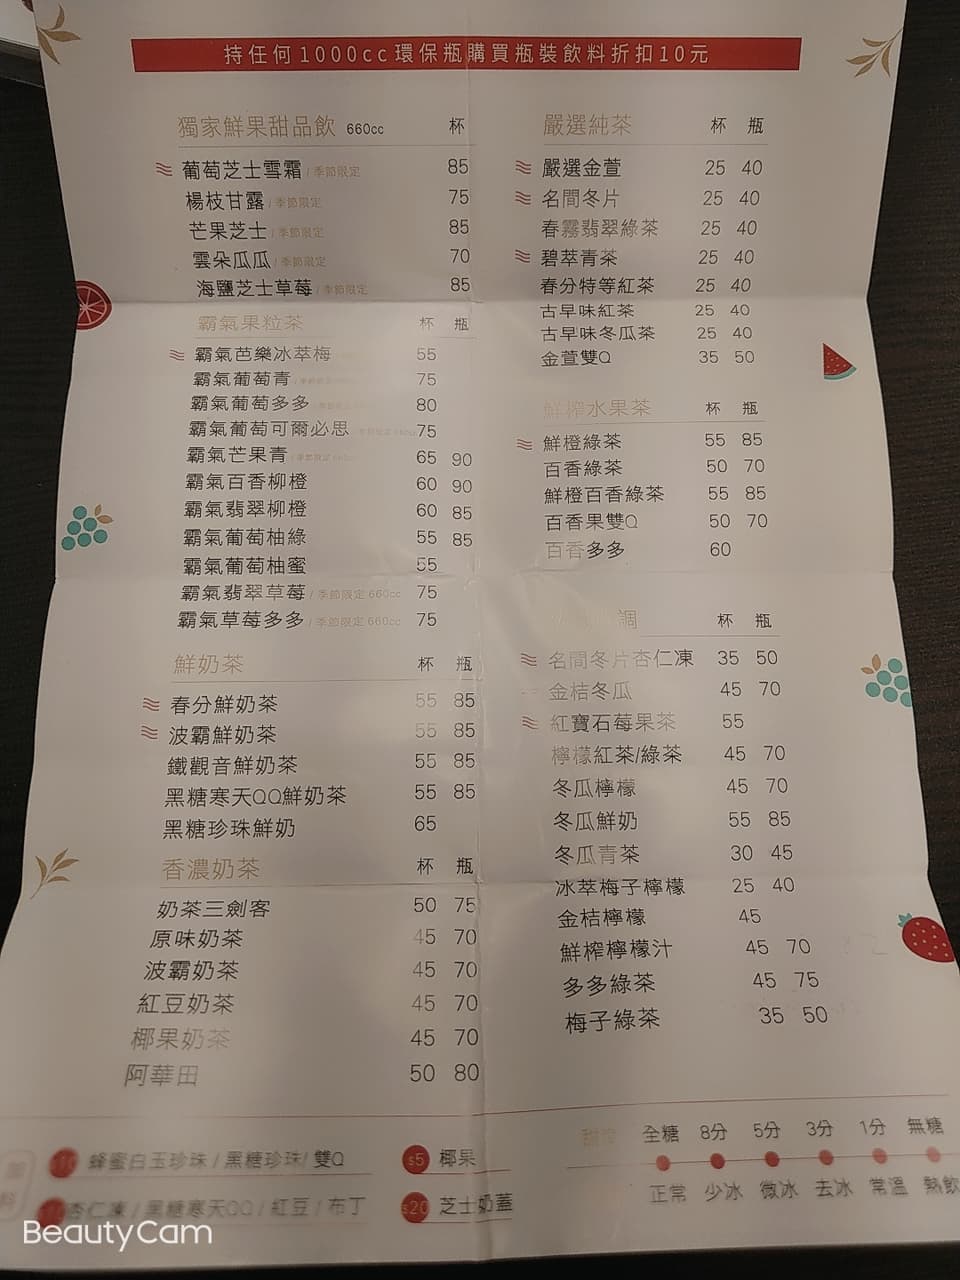 持任何1000cc環保瓶購買瓶裝飲料折扣10元
獨家鮮果甜品飲 660cc 杯
葡萄芝士雪霜 / 季節限定 85
楊枝甘露 / 季節限定 75
芒果芝士 / 季節限定 85
雲朵瓜瓜 / 季節限定 70
海鹽芝士草莓 / 季節限定 85
霸氣果粒茶 杯 瓶
霸氣芭樂冰萃梅 55
霸氣葡萄青 75
霸氣葡萄多多 80
霸氣葡萄可爾必思 75
霸氣芒果青 65 90
霸氣百香柳橙 60 90
霸氣翡翠柳橙 60 85
霸氣葡萄柚綠 55 85
霸氣葡萄柚蜜 55
霸氣翡翠草莓 / 季節限定 660cc 75
霸氣草莓多多 / 季節限定 660cc 75
鮮奶茶 杯 瓶
春分鮮奶茶 55 85
波霸鮮奶茶 55 85
鐵觀音鮮奶茶 55 85
黑糖寒天QQ鮮奶茶 55 85
黑糖珍珠鮮奶 65
香濃奶茶 杯 瓶
奶茶三劍客 50 75
原味奶茶 45 70
波霸奶茶 45 70
紅豆奶茶 45 70
椰果奶茶 45 70
阿華田 50 80
嚴選純茶 杯 瓶
嚴選金萱 25 40
名間冬片 25 40
春霧翡翠綠茶 25 40
碧萃青茶 25 40
春分特等紅茶 25 40
古早味紅茶 25 40
古早味冬瓜茶 25 40
金萱雙Q 35 50
鮮榨水果茶 杯 瓶
鮮橙綠茶 55 85
百香綠茶 50 70
鮮橙百香綠茶 55 85
百香果雙Q 50 70
百香多多 60
調 杯 瓶
名間冬片杏仁凍 35 50
金桔冬瓜 45 70
紅寶石莓果茶 55
檸檬紅茶/綠茶 45 70
冬瓜檸檬 45 70
冬瓜鮮奶 55 85
冬瓜青茶 30 45
冰萃梅子檸檬 25 40
金桔檸檬 45
鮮榨檸檬汁 45 70
多多綠茶 45 75
梅子綠茶 35 50
蜂蜜白玉珍珠 / 黑糖珍珠 / 雙Q
$5 椰果
杏仁凍 / 黑糖寒天QQ / 紅豆 / 布丁
$20 芝士奶蓋
甜度 全糖 8分 5分 3分 1分 無糖
正常 少冰 微冰 去冰 常溫 熱飲
BeautyCam